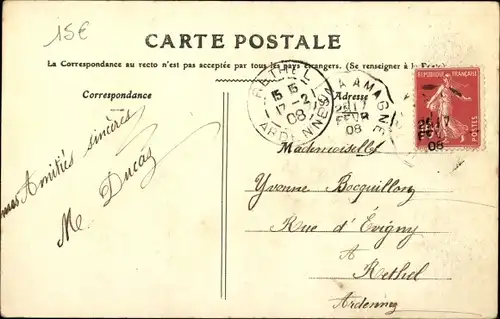 15€
CARTE POSTALE
La Correspondance au recto n'est pas acceptée par tous les pays étrangers. (Se renseigner à la
Correspondance
Adresse
RETHEL
15 15
17-2
08
ARDENNES
AMAGNE
17
FEVR
08
REPUBLIQUE FRANÇAISE
POSTES
17
08
Mademoiselle
Yvonne Bocquillon
Rue d'Evigny
A
Rethel
Ardennes
Amitiés sincères
Me. Ducas